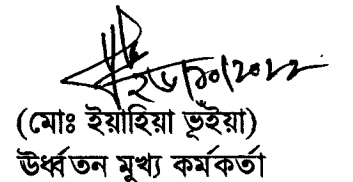 ২৬/১০/২০২২
(মোঃ ইয়াহিয়া ভূঁইয়া)
উর্ধ্বতন মুখ্য কর্মকর্তা